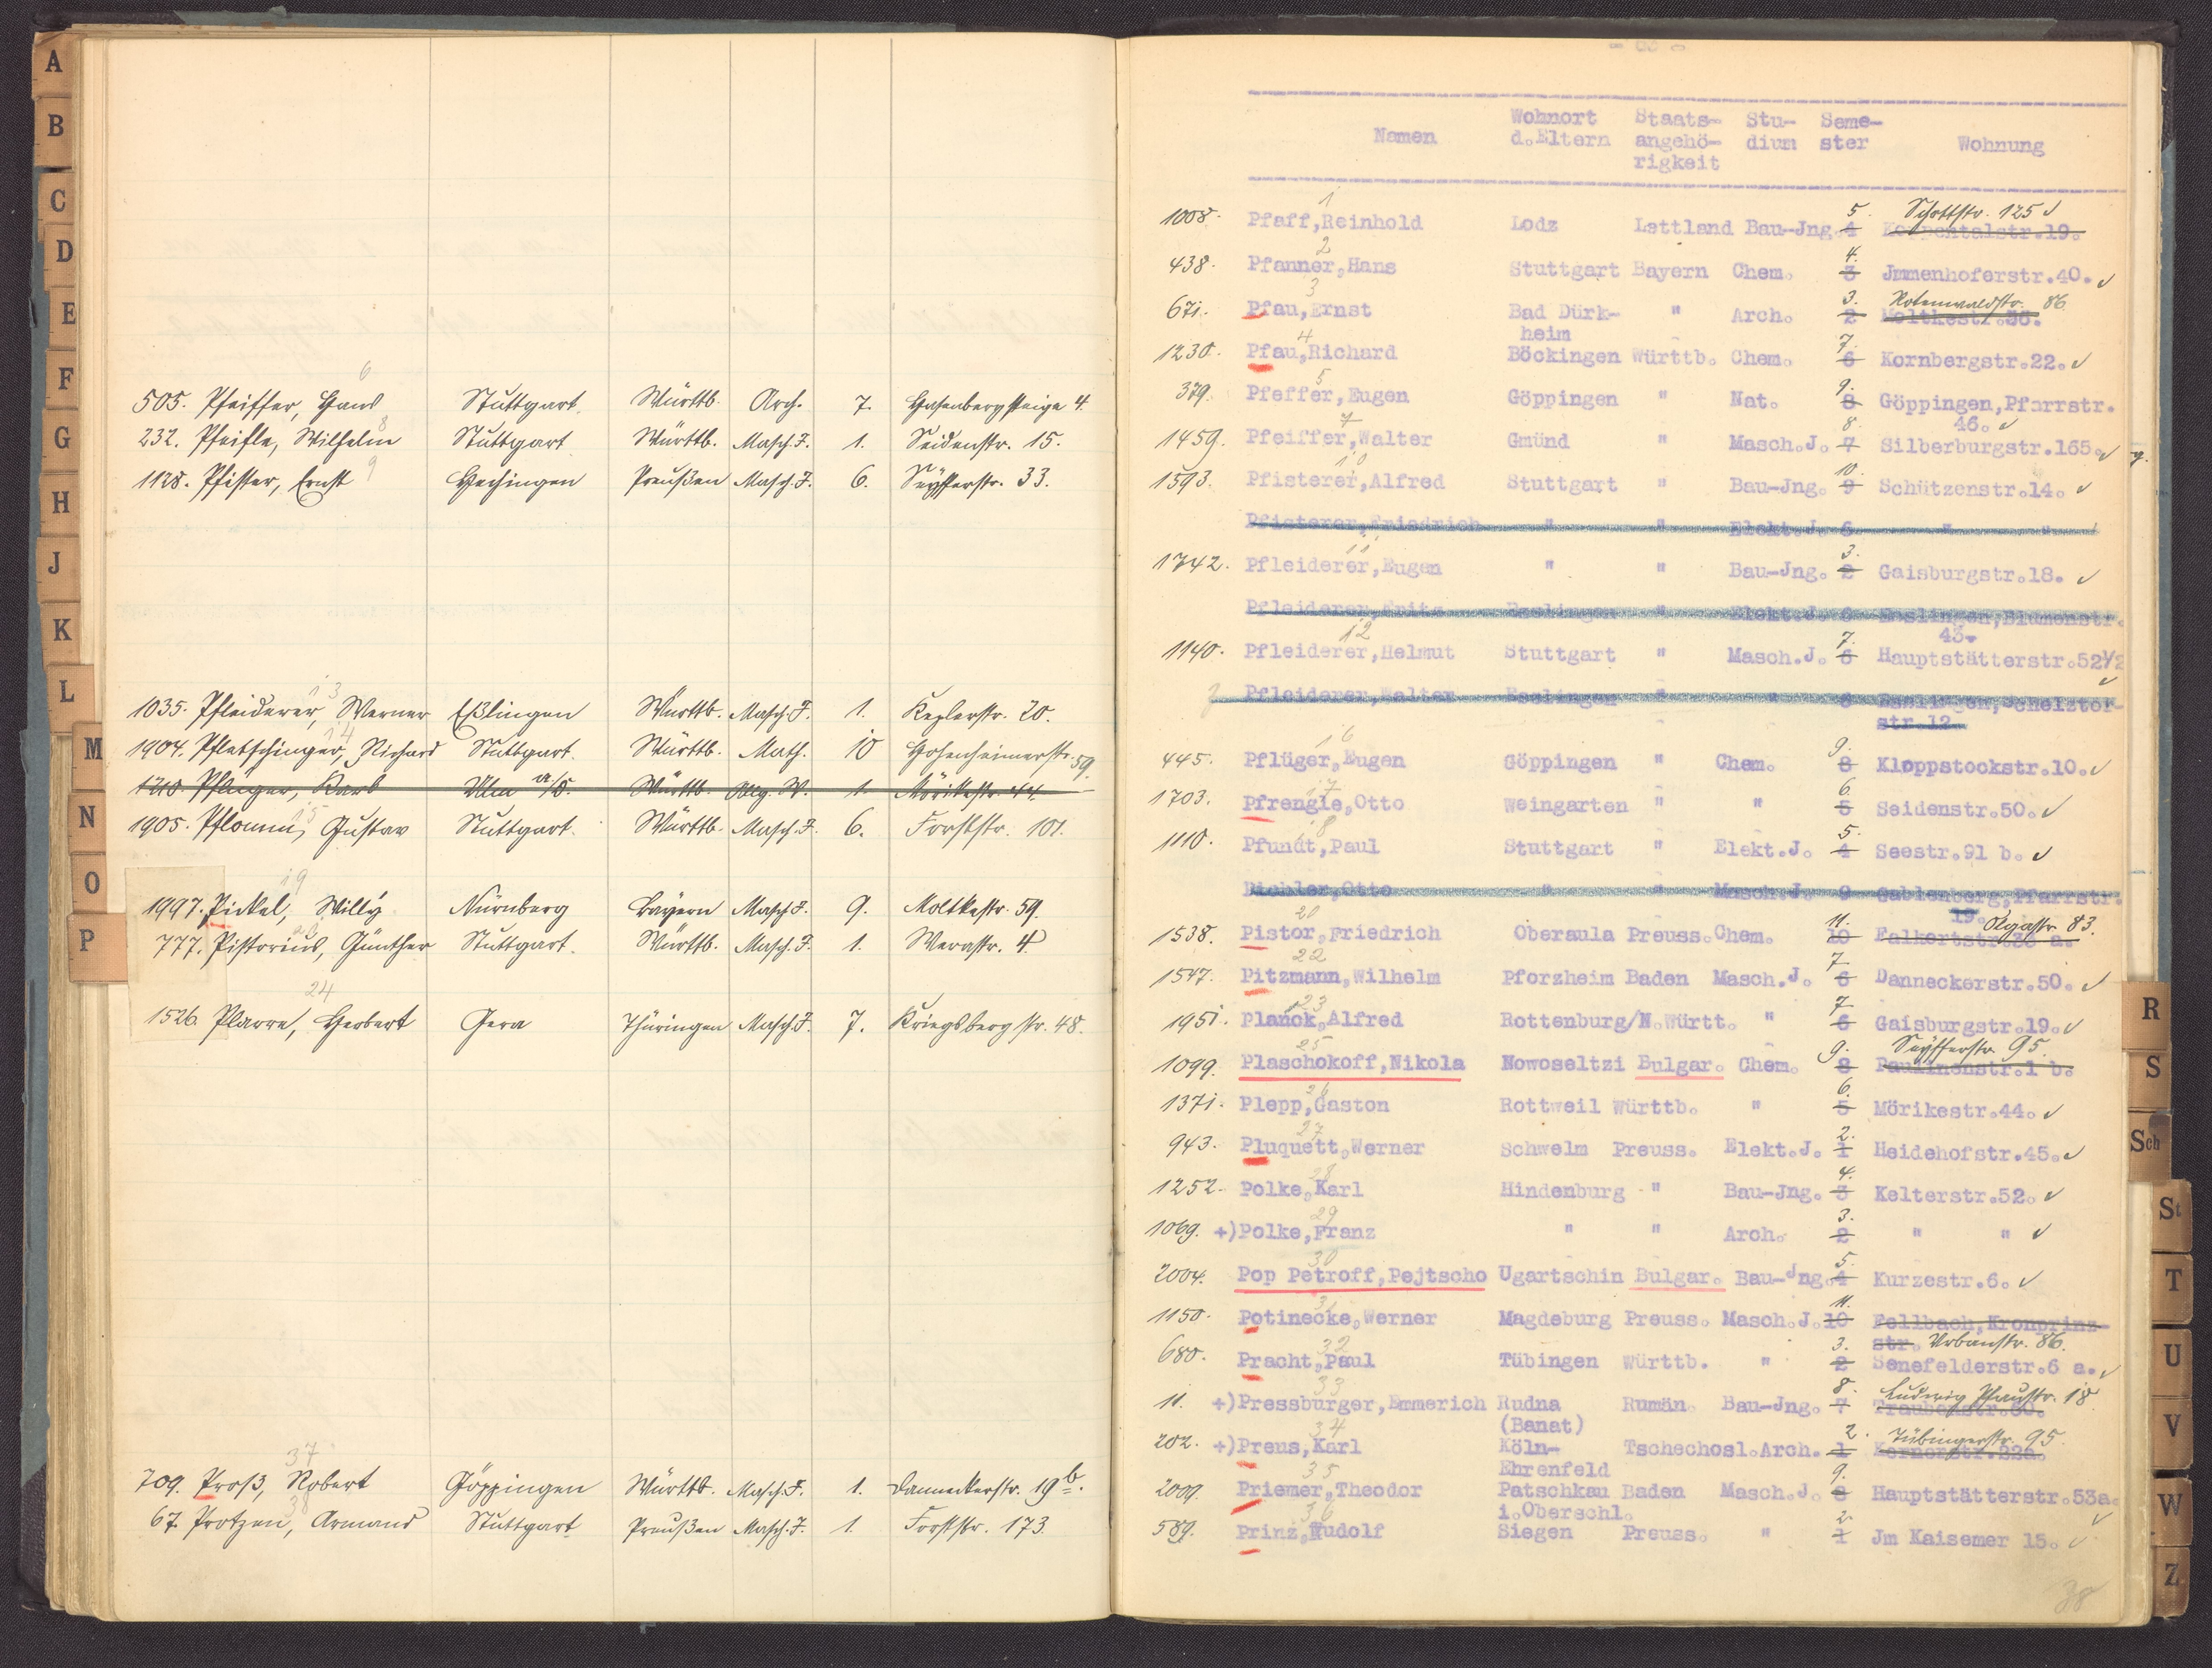 A
B
C
D
E
F
G
H
J
K
L
M
N
O
P
505. Pfeiffer, Hans Stuttgart. Württb. Arch. 7. Hasenbergsteige 4.
6
232. Pfeifle, Wilhelm Stuttgart Württb. Masch.J. 1. Seidenstr. 15.
8
1128. Pfister, Ernst Hechingen Preußen Masch.J. 6. Seyfferstr. 33.
9
1035. Pfleiderer, Werner Eßlingen Württb. Masch.J. 1. Keplerstr. 20.
13
1904. Pfletschinger, Richard Stuttgart. Württb. Math. 10 Hohenheimerstr. 59.
14
1210. Pflüger, Karl Ulm a/D. Württb. Allg. W. 1. Mörikestr. 44.
1905. Pflomm, Gustav Stuttgart. Württb. Masch.J. 6. Forststr. 101.
15
1997. Pickel, Willy Nürnberg Bayern Masch.J. 9. Moltkestr. 59.
19
777. Pistorius, Günther Stuttgart. Württb. Masch.J. 1. Werastr. 4
1526. Plarre, Herbert Gera Thüringen Masch.J. 7. Kriegsbergstr. 48.
24
709. Proß, Robert Göppingen Württb. Masch.J. 1. Danneckerstr. 19b.
37
67. Protzen, Armand Stuttgart Preußen Masch.J. 1. Forststr. 173.
38
Namen Wohnort d.Eltern Staats-angehö-rigkeit Stu-dium Seme-ster Wohnung
1
1008. Pfaff,Reinhold Lodz Lettland Bau-Jng. 4 5. Schottstr. 125 ✓
2
438. Pfanner,Hans Stuttgart Bayern Chem. 3 4. Jmmenhoferstr.40. ✓
3
671. Pfau,Ernst Bad Dürk-heim " Arch. 2 3. Moltkestr. Rotenwaldstr. 86
4
1230. Pfau,Richard Böckingen Württb. Chem. 6 7. Kornbergstr.22. ✓
5
379. Pfeffer,Eugen Göppingen " Nat. 8 9. Göppingen,Pfarrstr. 46. ✓
7
1459. Pfeiffer,Walter Gmünd " Masch.J. 7 8. Silberburgstr.165. ✓
10
1593. Pfisterer,Alfred Stuttgart " Bau-Jng. 9 10. Schützenstr.14. ✓
Pfisterer,Friedrich " " Elekt.J. 6 " "
11
1742. Pfleiderer,Eugen " " Bau-Jng. 2 3. Gaisburgstr.18. ✓
Pfleiderer,Fritz Esslingen " Elekt.J. 6 Esslingen,Blumenstr. 43.
12
1140. Pfleiderer,Helmut Stuttgart " Masch.J. 6 7. Hauptstätterstr.52½ ✓
Pfleiderer,Walter Esslingen " " 8 Esslingen,Schelztor-str.12.
16
445. Pflüger,Eugen Göppingen " Chem. 8 9. Kloppstockstr.10. ✓
17
1703. Pfrengle,Otto Weingarten " " 5 6. Seidenstr.50. ✓
18
1110. Pfundt,Paul Stuttgart " Elekt.J. 4 5. Seestr.91 b. ✓
Pichler,Otto " " Masch.J. 9 Gablenberg,Pfarrstr. 19.
20
1538. Pistor,Friedrich Oberaula Preuss. Chem. 10 11. Falkertstr. Olgastr. 83.
22
1547. Pitzmann,Wilhelm Pforzheim Baden Masch.J. 6 7 Danneckerstr.50. ✓
23
1951. Planck,Alfred Rottenburg/N. Württ. " 6 7 Gaisburgstr.19. ✓
25
1099. Plaschokoff,Nikola Nowoseltzi Bulgar. Chem. 8 9. Paulinenstr.1 b. Seyfferstr. 95.
26
1371. Plepp,Gaston Rottweil Württb. " 5 6. Mörikestr.44. ✓
27
943. Pluquett,Werner Schwelm Preuss. Elekt.J. 1 2. Heidehofstr.45. ✓
28
1252. Polke,Karl Hindenburg " Bau-Jng. 3 4. Kelterstr.52. ✓
29
1069. +)Polke,Franz " " Arch. 2 3. " " ✓
30
2004. Pop Petroff,Pejtscho Ugartschin Bulgar. Bau-Jng. 4 5. Kurzestr.6. ✓
31
1150. Potinecke,Werner Magdeburg Preuss. Masch.J. 10 11. Fellbach,Kronprinz-str. Urbanstr. 86.
32
680. Pracht,Paul Tübingen Württb. " 2 3. Senefelderstr.6 a. ✓
33
11. +)Pressburger,Emmerich Rudna (Banat) Rumän. Bau-Jng. 7 8. Traubenstr. Ludwig Pfaustr. 18
34
202. +)Preus,Karl Köln-Ehrenfeld Tschechosl. Arch. 1 2. Kernerstr.22a. Tübingerstr. 95.
35
2009. Priemer,Theodor Patschkau i.Oberschl. Baden Masch.J. 8 9. Hauptstätterstr.53a. ✓
36
589. Prinz,Rudolf Siegen Preuss. " 1 2. Jm Kaisemer 15. ✓
38
R
S
Sch
St
T
U
V
W
Z